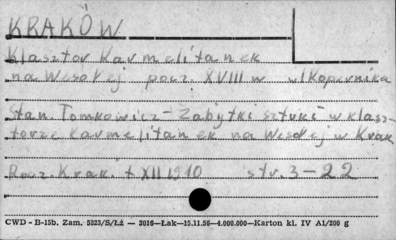 KRAKÓW
Klasztor Karmelitanek
na Wesołej pocz. XVIII w ul Kopernika
Stan. Tomkowicz - Zabytki sztuki w klasz-
torze Karmelitanek na Wesołej w Krak
Rocz. Krak. t XII 1910 str. 3-22
CWD - B-15b. Zam. 5823/S/Łż — 2016—Łak—15.11.56—4.000.000—Karton kl. IV A1/200 g